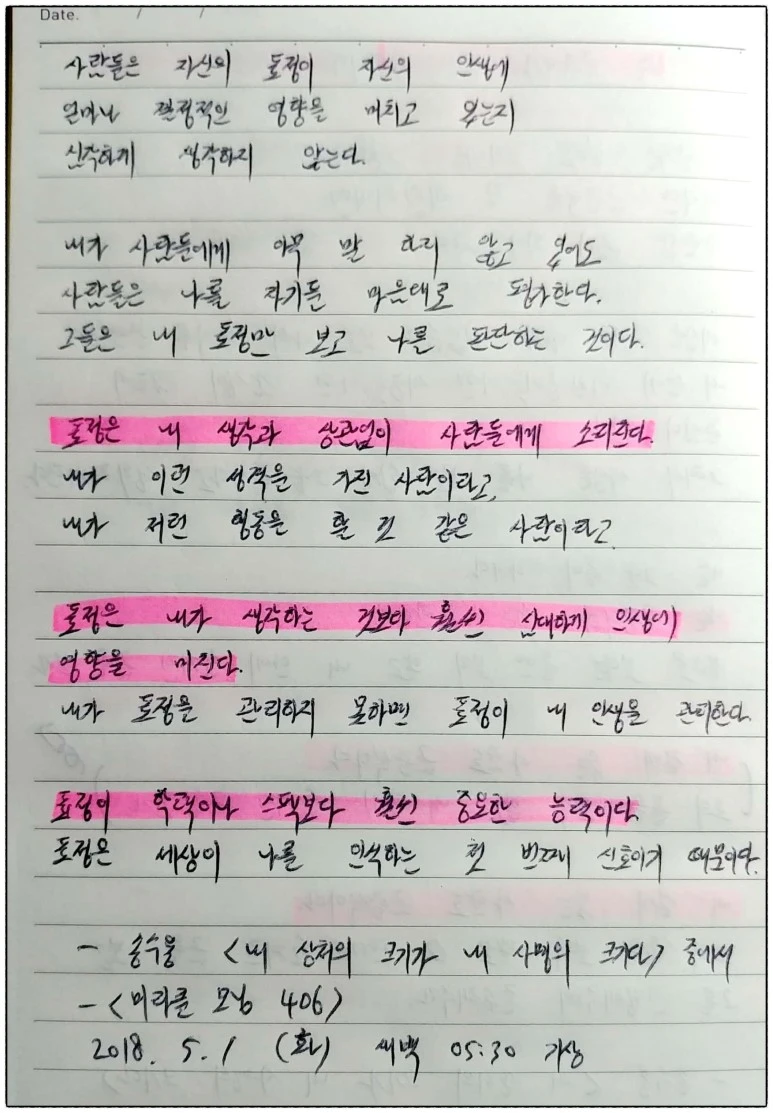 Date. / /
사람들은 자신의 표정이 자신의 인생에
얼마나 결정적인 영향을 미치고 있는지
심각하게 생각하지 않는다.
내가 사람들에게 아무 말 하지 않고 있어도
사람들은 나를 자기들 마음대로 평가한다.
그들은 내 표정만 보고 나를 판단하는 것이다.
표정은 내 생각과 상관없이 사람들에게 소리친다.
내가 이런 성격을 가진 사람이라고,
내가 저런 행동을 할 것 같은 사람이라고.
표정은 내가 생각하는 것보다 훨씬 심대하게 인생에
영향을 미친다.
내가 표정을 관리하지 못하면 표정이 내 인생을 관리한다.
표정이 학력이나 스펙보다 훨씬 중요한 능력이다.
표정은 세상이 나를 인식하는 첫 번째 신호이기 때문이다.
- 송수용 <내 상처의 크기가 내 사명의 크기다> 중에서
- <미라클 모닝 406>
2018. 5. 1 (화) 새벽 05:30 기상